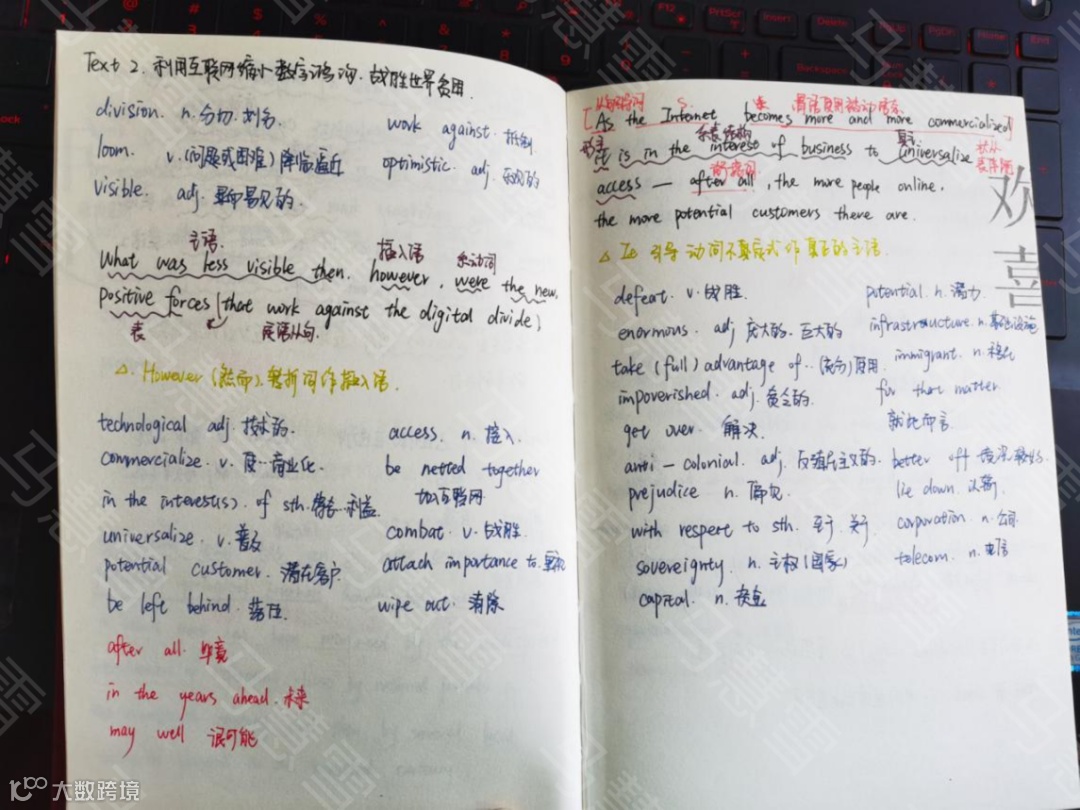 Text 2. 利用互联网缩小数字鸿沟. 战胜世界贫困.
division. n. 分切. 划分.
work against. 抵制
loom. v. (问题或困难) 降临逼近
optimistic. adj. 乐观的
visible. adj. 显而易见的.
主语.
插入语
系动词
What was less visible then, however, were the new,
positive forces [that work against the digital divide]
表
定语从句.
△. However (然而). 转折词作插入语.
technological adj. 技术的.
access. n. 接入.
commercialize. v. 使…商业化.
be netted together
in the interest(s) of sth.
加入互联网
universalize. v. 普及
combat. v. 战胜.
potential customer. 潜在客户
attach importance to. 重视
be left behind. 落后.
wipe out. 消除
after all. 毕竟
in the years ahead. 未来
may well 很可能
从句引导词 S.
[As the Internet becomes more and more commercialized]
形主
真主
状从
it is in the interest of business to universalize
access — after all, the more people online,
the more potential customers there are.
△ It 引导 动词不定式 作 真正的主语.
defeat. v. 战胜.
potential. n. 潜力.
enormous. adj. 庞大的. 巨大的
infrastructure. n. 基础设施
take (full) advantage of.. (充分) 使用
immigrant. n. 移民
impoverished. adj. 贫乏的.
for that matter.
get over. 解决.
就此而言.
anti — colonial. adj. 反殖民主义的.
better off
prejudice n. 偏见.
lie down.
with respect to sth. 至于. 关于.
corporation. n. 公司.
sovereignty. n. 主权 (国家)
telecom. n. 电信
capital. n. 资金
欢
喜
大数跨境